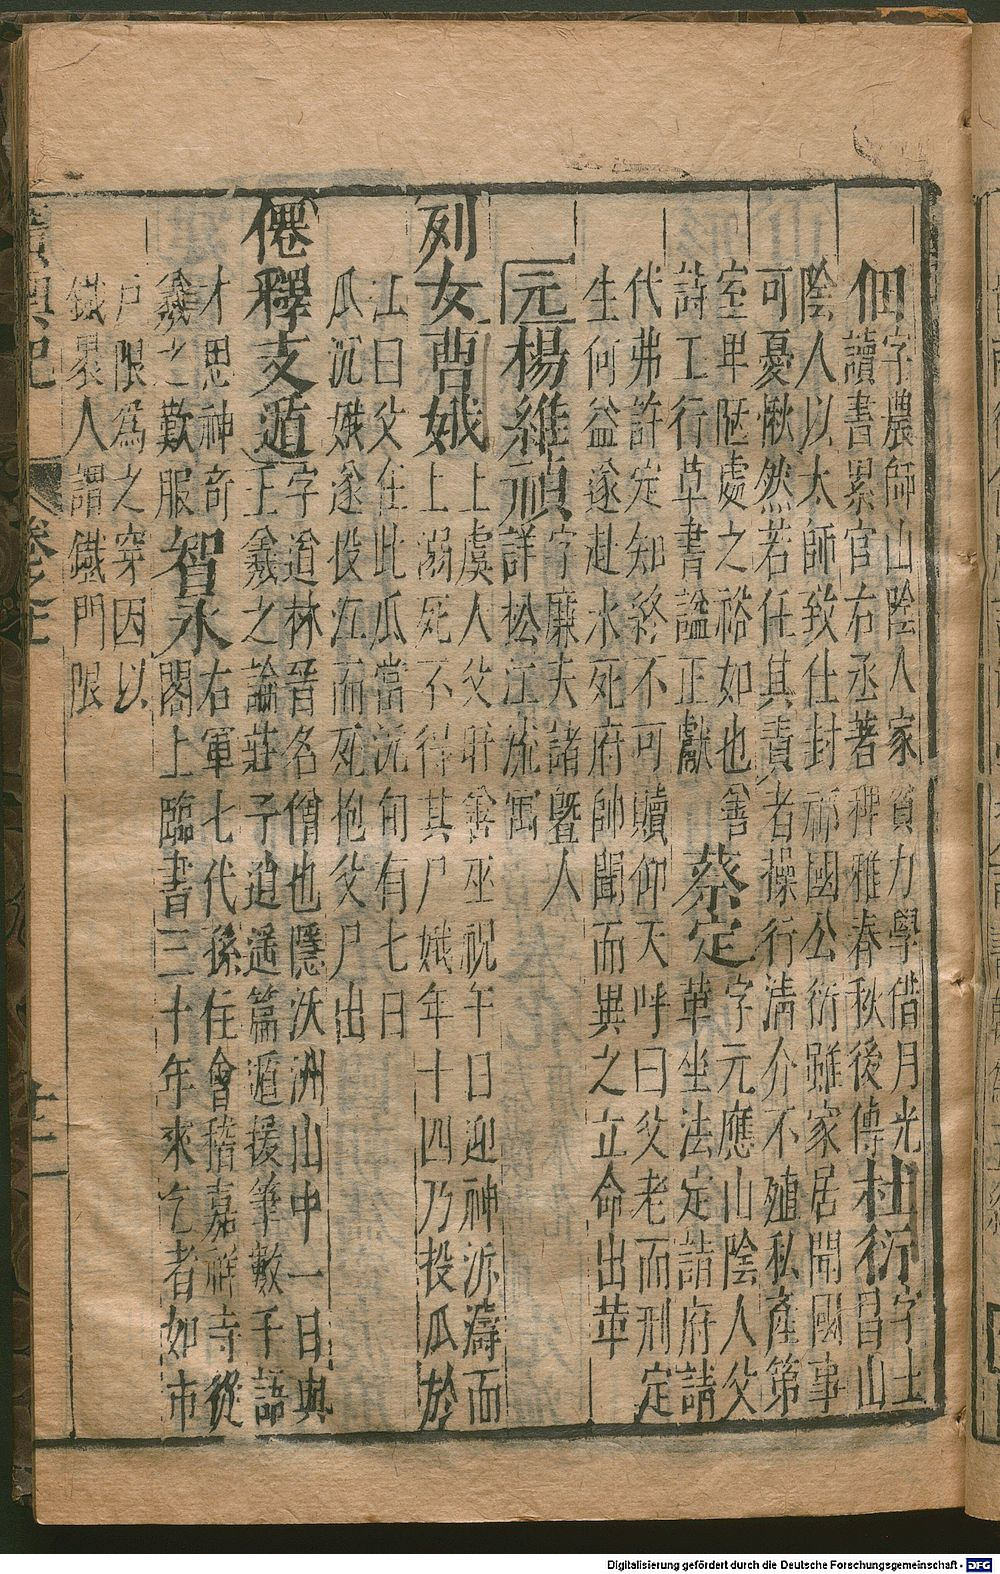 佃字農師山陰人家貧力學借月光
讀書累官右丞著稗雅春秋後傳杜衍字士
昌山
陰人以太師致仕封祁國公衍雖家居聞國事
可憂愀然若任其責者操行清介不殖私產第
室卑陋處之裕如也善
詩工行草書諡正獻蔡定字元應山陰人父
革坐法定請府請
代弗許定知終不可贖仰天呼曰父老而刑定
生何益遂赴水死府帥聞而異之立命出革
元楊維禎字廉夫諸暨人
詳松江流寓
列女曹娥上虞人父盱善巫祝午日迎神泝濤而
上溺死不得其尸娥年十四乃投瓜於
江曰父在此瓜當沉旬有七日
瓜沉娥遂投江而死抱父尸出
僊釋支遁字道林晉名僧也隱沃洲山中一日與
王羲之論莊子逍遙篇遁援筆數千語
才思神奇
羲之歎服智永右軍七代孫住會稽嘉祥寺從
閣上臨書三十年來乞者如市
戶限爲之穿因以
鐵裹人謂鐵門限
廣輿記 卷之
Digitalisierung gefördert durch die Deutsche Forschungsgemeinschaft - DFG